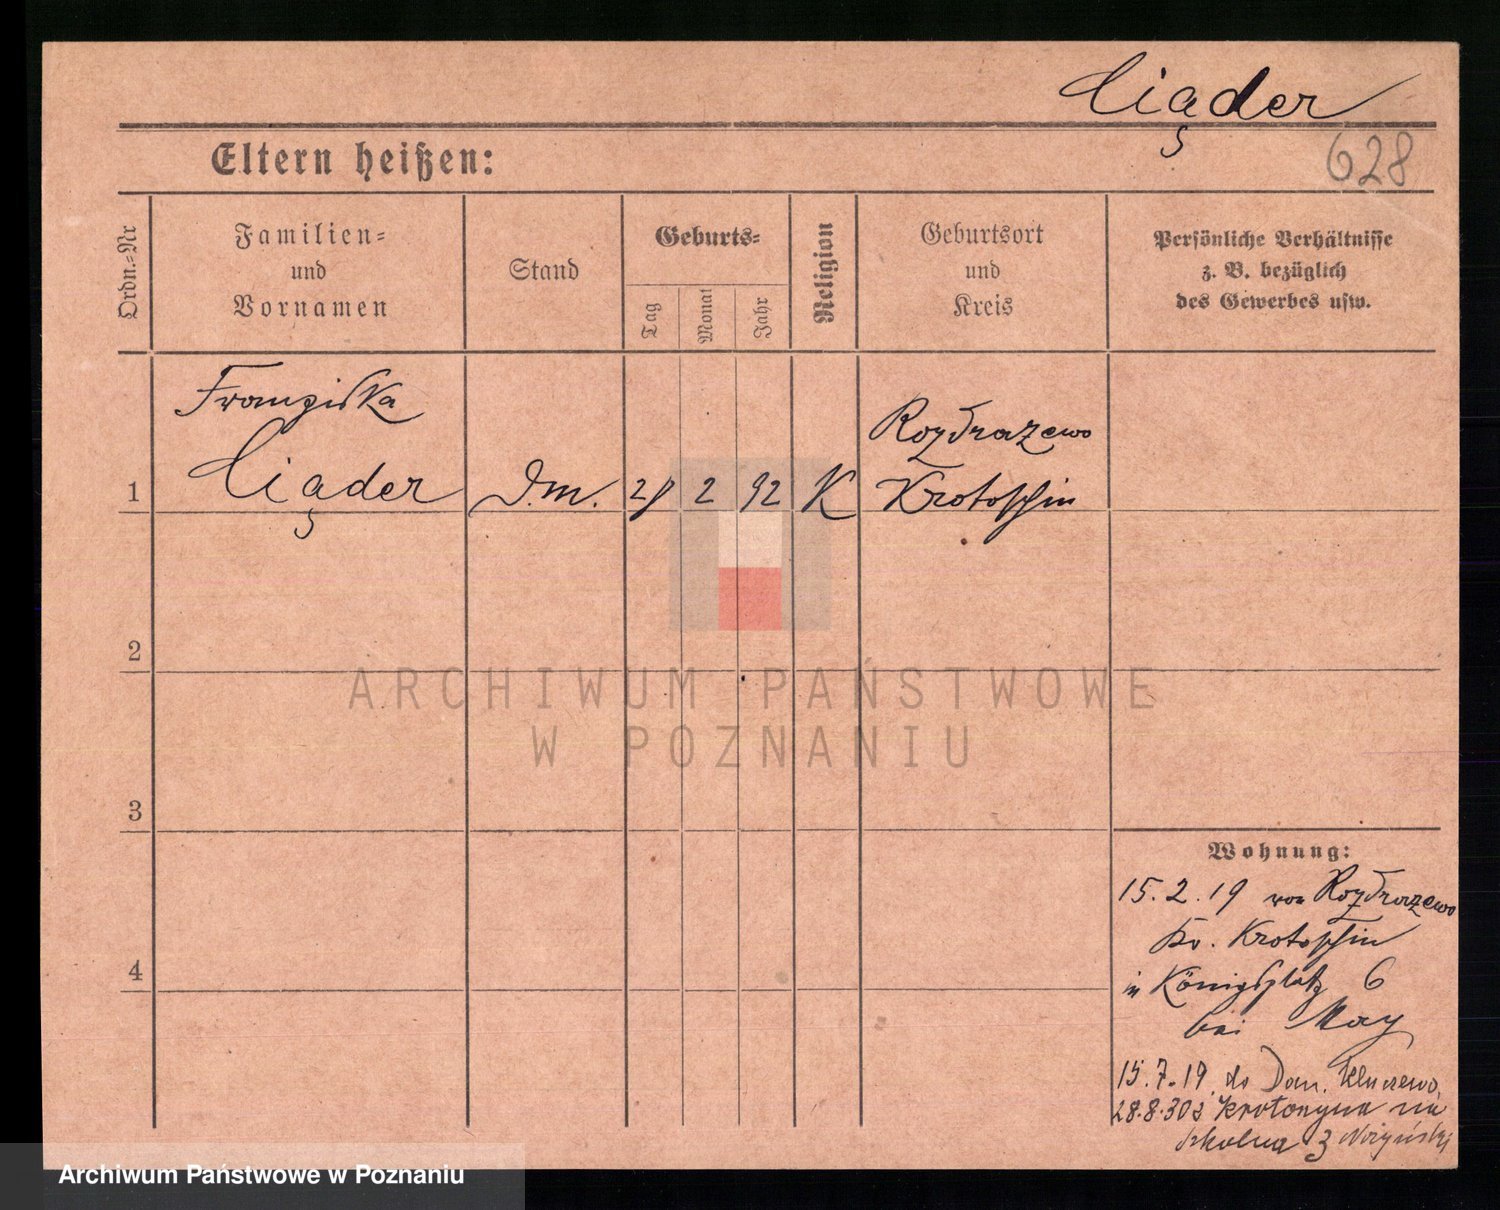 Ciąder
628
Eltern heißen:
Ordn.=Nr
Familien=
und
Vornamen
Stand
Geburts=
Tag
Monat
Jahr
Religion
Geburtsort
und
Kreis
Persönliche Verhältnisse
z. B. bezüglich
des Gewerbes usw.
Franziska
Ciąder
1
D.m.
2 92 K
Rozdrazewo
Krotoschin
2
ARCHIWUM PAŃSTWOWE
W POZNANIU
3
Wohnung:
15.2.19 von Rozdrazewo
Kr. Krotoschin
in Königsplatz 6
bei May
4
15.7.19 do Dom.
28.8.30 z Krotoszyna na
Szkolna 3
Archiwum Państwowe w Poznaniu